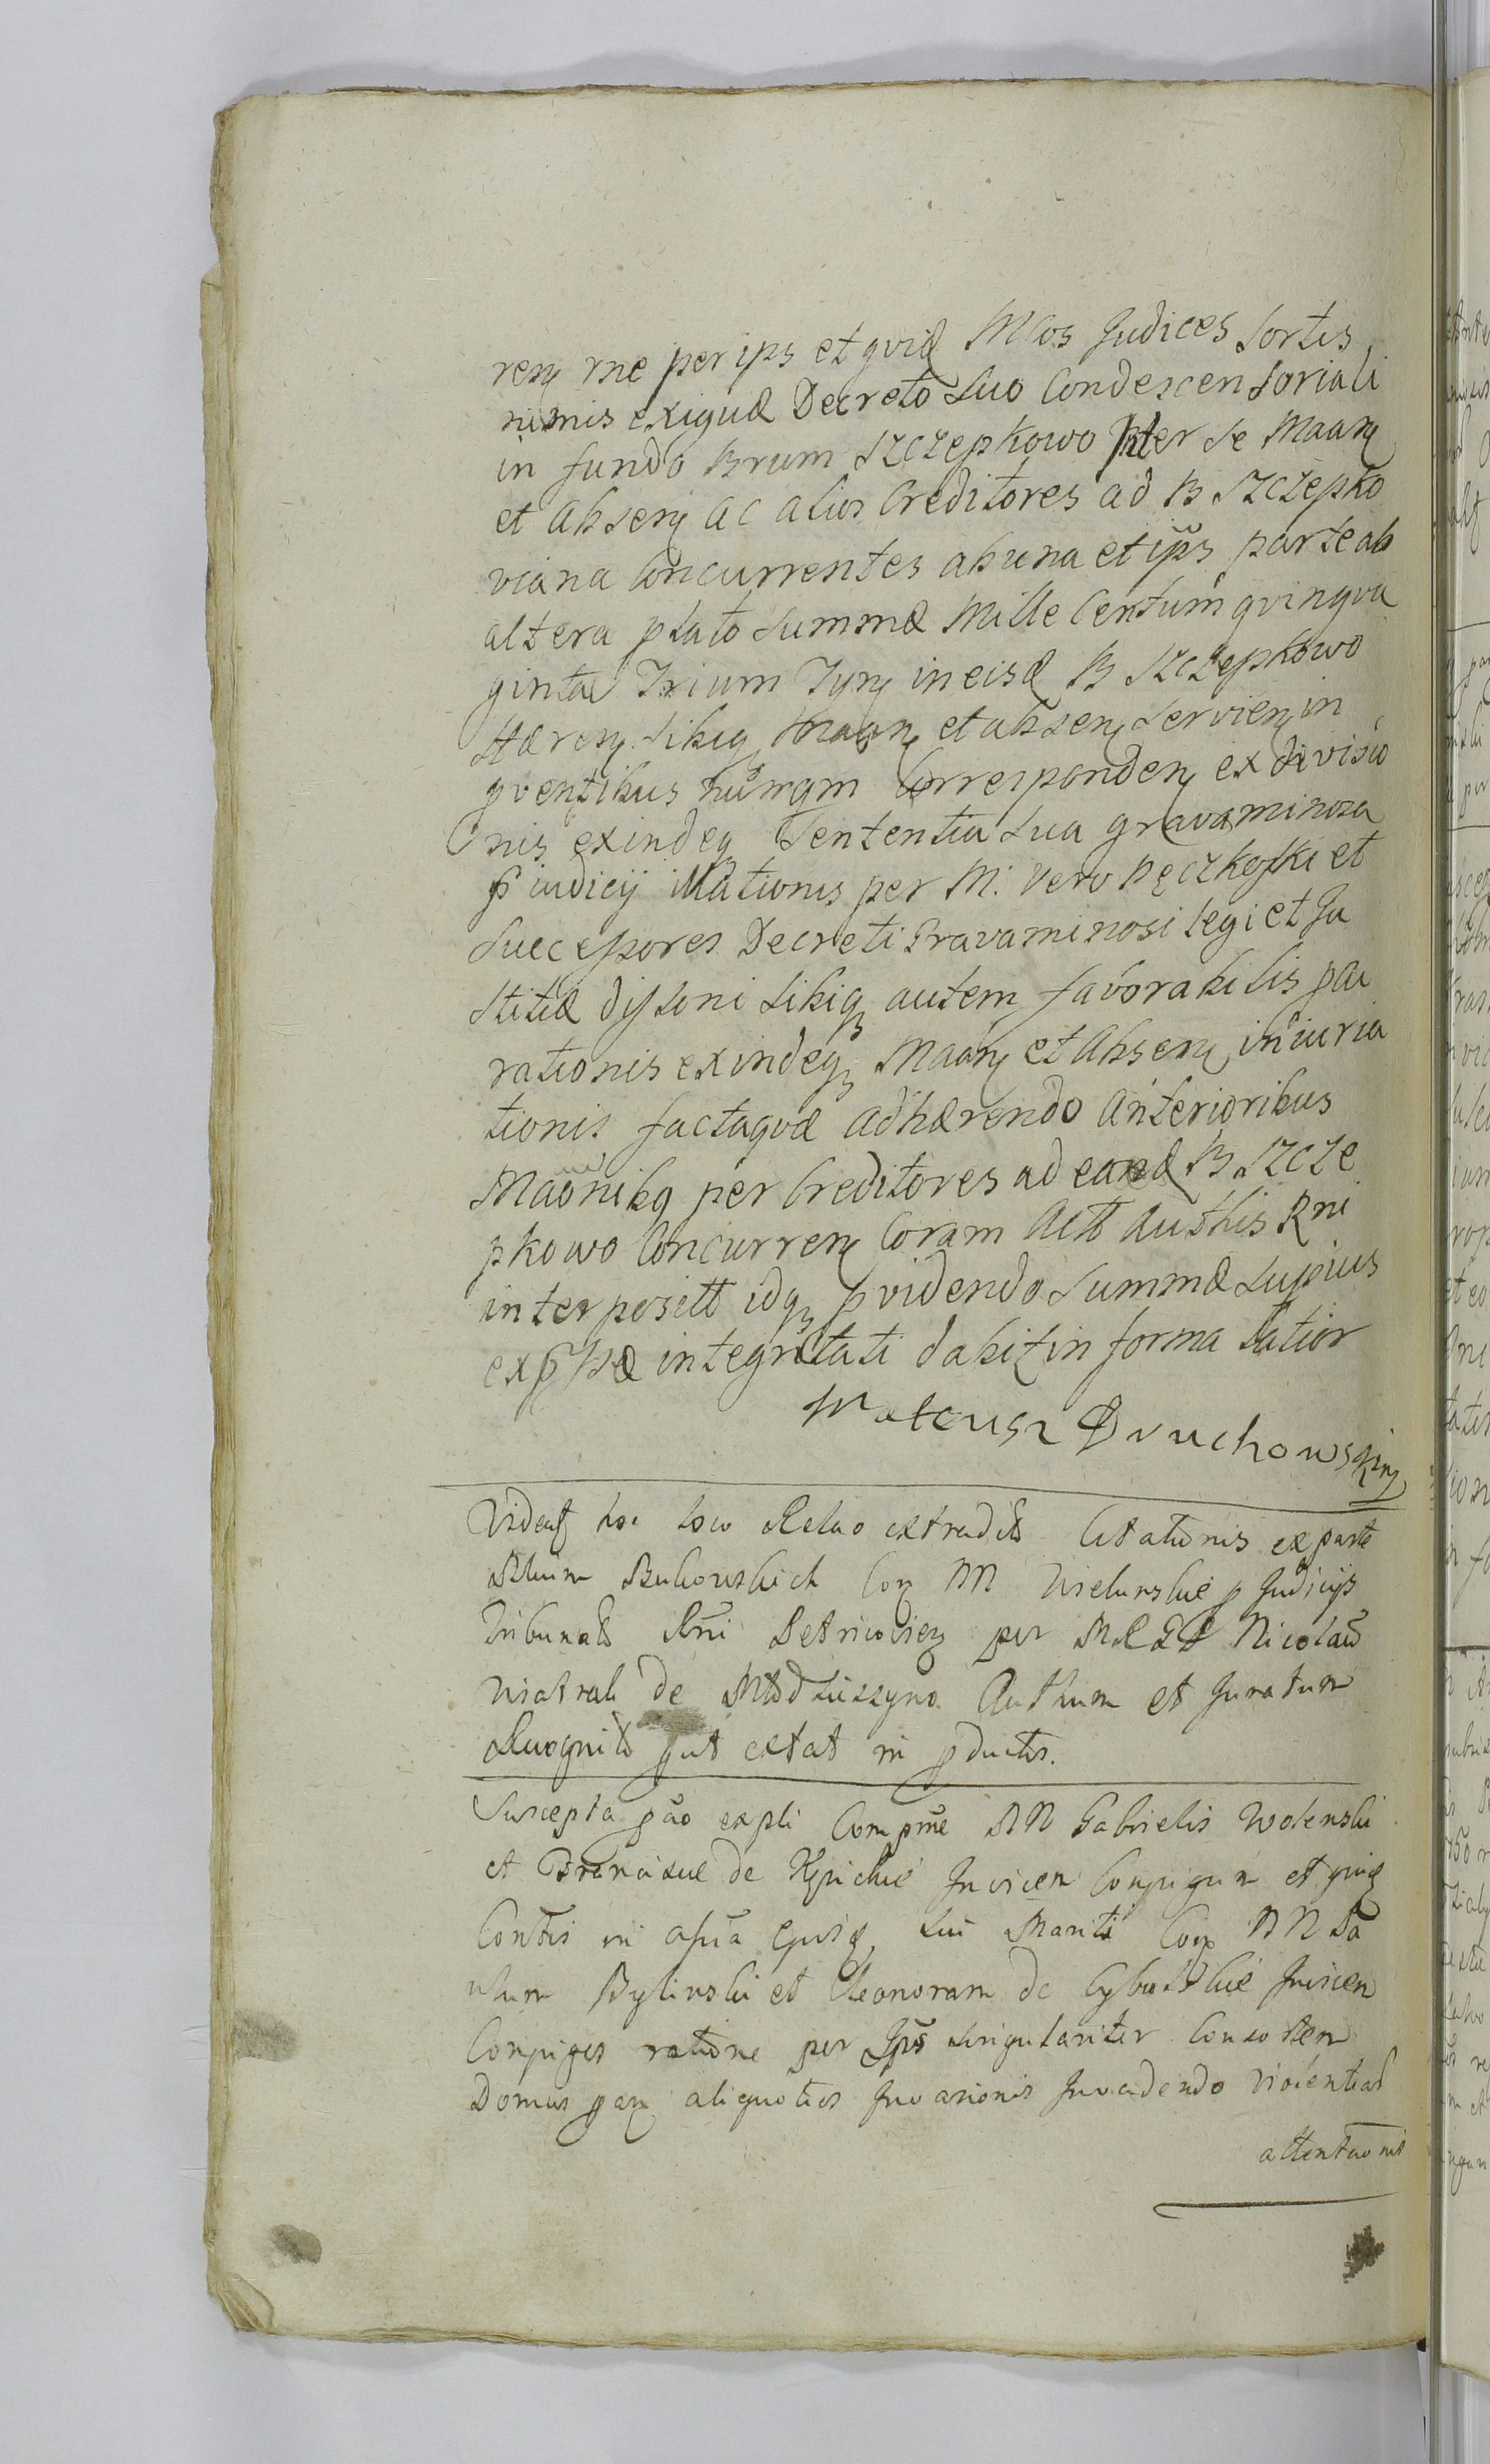 ren rne per ips et gvid Mcos Judices Sortis
nimis exiguæ Decreto Suo Condescensoriali
in fundo Brum Szczepkowo Inter se Maan
et absen ac alios Creditores ad B Szczepko
viana Concurrentes ab una et ips parte ab
altera plato Summæ Mille Centum qvinqva
ginta Trium Tyn in eisd B Szczepkowo
Hæren Sibiq Maan et absen Servien in
qventibus numqm Corresponden ex divisio
nis exindeq Sententia Sua gravaminosa
p iudicij illationis per M. Vero Pęczkoski et
Successores Decreti Gravaminosi legi et Ju
stitiæ dissoni Sibiq autem favorabilis pa
rationis exindeq Maan et Absen iniuria
tionis factaqvæ adhærendo anterioribus
Maonibq per Creditores ad eand B Szcze
pkowo Concurren Coram Actt Authis Rni
interpositt idq pvidendo Summæ Supius
exp̄ssæ integritati dabit in forma latior
Mateusz Bruchowski
Videat hoc loco Relao extradit Citationis ex parte
Bukowskich Con MM Wielunskie p Judicijs
Tribunalis Rni Petricovien per Nicolau
Wiatrak de Authum et Juratum
Recognito put extat in pductis.
Suscepta pao expli Comprne MM Gabrielis Wolenski
et Franciscæ de Invicem Conjugum et
Contis in asna Sui Mariti Con MM Pa
ulum Bylinski et Eleonoram de Invicem
Conjuges ratione per Ips Singulariter Consorten
Domus pan aliquoties Invasionis Invadendo violentias
attentaonis